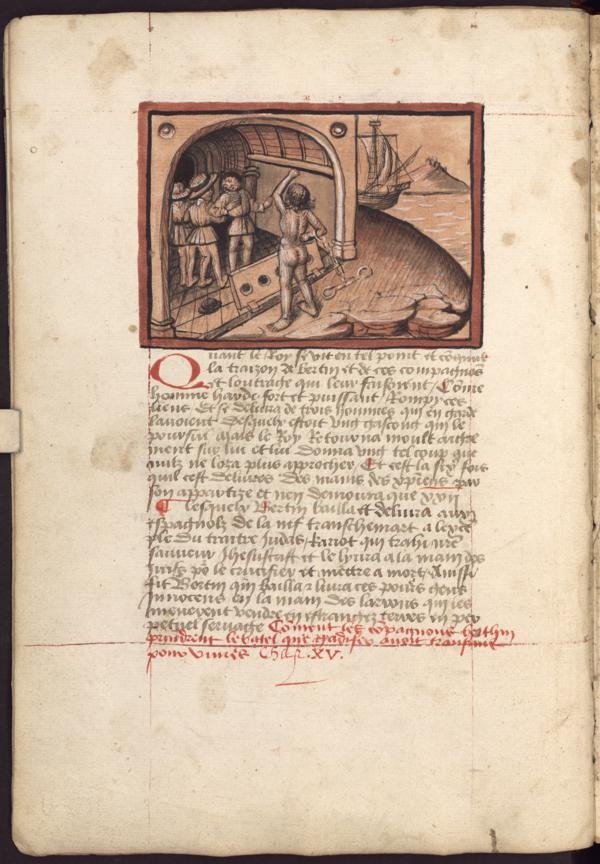 Quant le Roy se vit en tel point et congnut
la traizon de Bertin et de ces compagnons
et loutrage qui leur faisoient Come
homme hardy fort et puissant Rompy ces
liens Et se delivra de trois hommes qui en garde
lavoient desquelx estoit ung gascong qui le
poursui mais le Roy Retourna moult aigre
ment sur lui et lui donna ung tel coup que
nulz ne loza plus approcher Et cest la six fois
quil cest delivres Des mains des xpiens par
son appertize et nen demoura que xvii
Lesquelx Bertin bailla et delivra aux
espagnolz de la nif transchemart a lexem
ple du traitre Judas Kariot qui trahi nre
sauveur Jhesucrist et le livra a la main des
Juifz po le crucifier et mettre a mort Aussi
fit Bertin qui bailla et livra ces poures gens
Innocens en la main des larrons qui les
menerent vendre en estrangez terres en per
petuel servage Coment les copagnons berthin
prindrent le batel que gadifer avoit transmis
pour vivres Chap. XV.